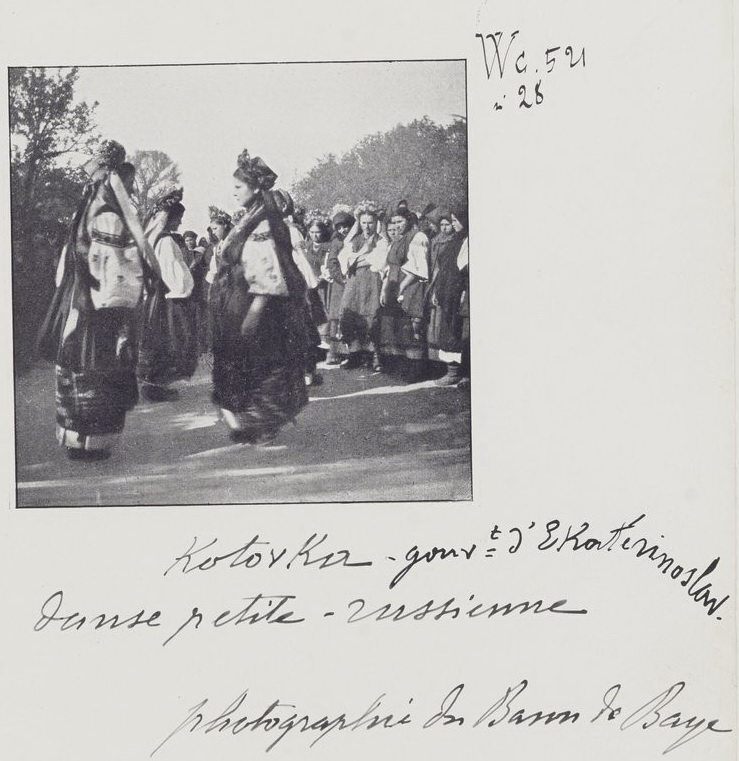 Wc. 521
n° 28
Kotovka - gouvt d'Ekatérinoslav.
danse petite-russienne
photographie du Baron de Baye